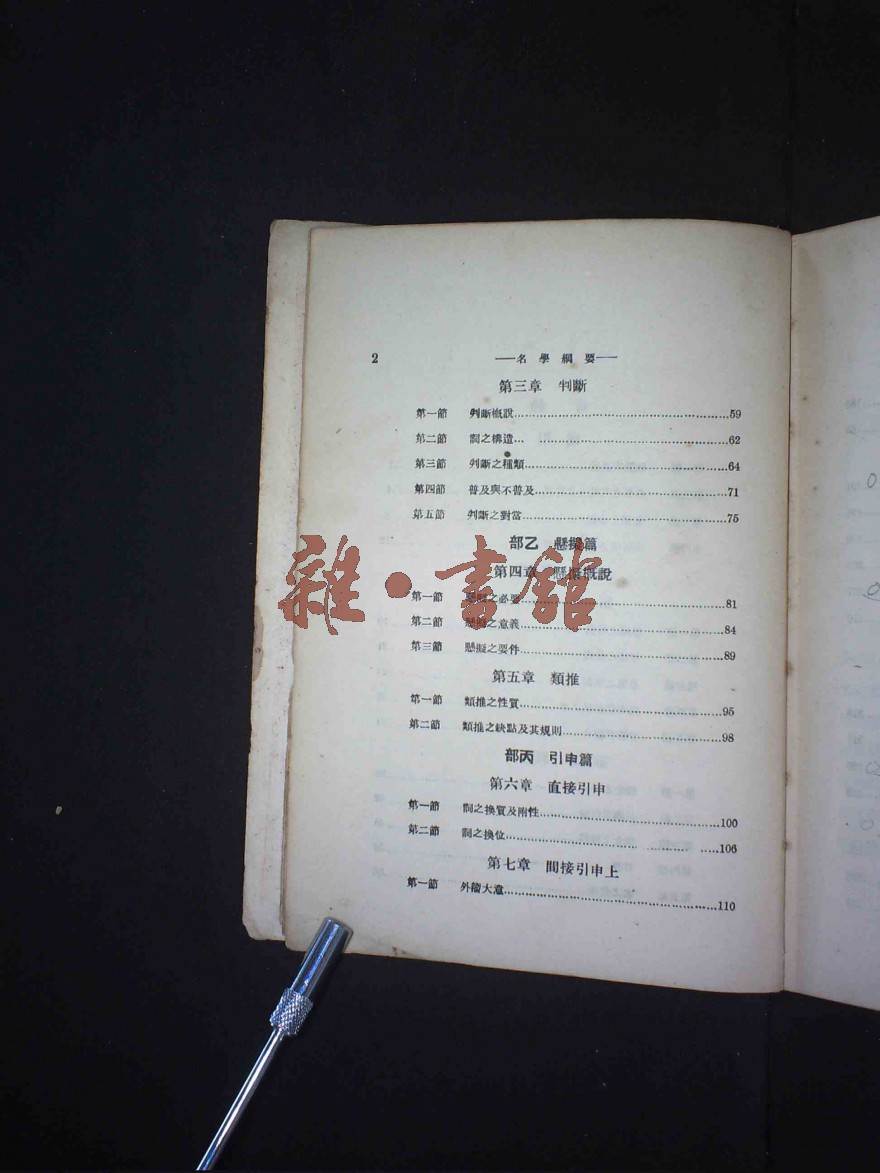 2 ——名學綱要——
第三章 判斷
第一節 判斷概說……59
第二節 詞之構造……62
第三節 判斷之種類……64
第四節 普及與不普及……71
第五節 判斷之對當……75
部乙 懸擬篇
第四章 懸擬概說
第一節 懸擬之必要……81
第二節 懸擬之意義……84
第三節 懸擬之要件……89
第五章 類推
第一節 類推之性質……95
第二節 類推之缺點及其規則……98
部丙 引申篇
第六章 直接引申
第一節 詞之換質及附性……100
第二節 詞之換位……106
第七章 間接引申上
第一節 外籀大意……110
雜·書館